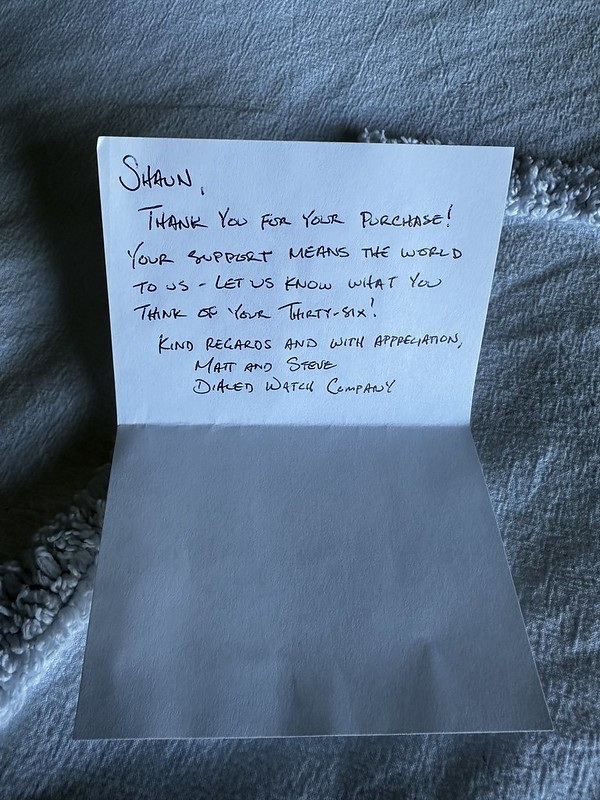 SHAUN,
THANK YOU FOR YOUR PURCHASE!
YOUR SUPPORT MEANS THE WORLD
TO US - LET US KNOW WHAT YOU
THINK OF YOUR THIRTY-SIX!
KIND REGARDS AND WITH APPRECIATION,
MATT AND STEVE
DIALED WATCH COMPANY